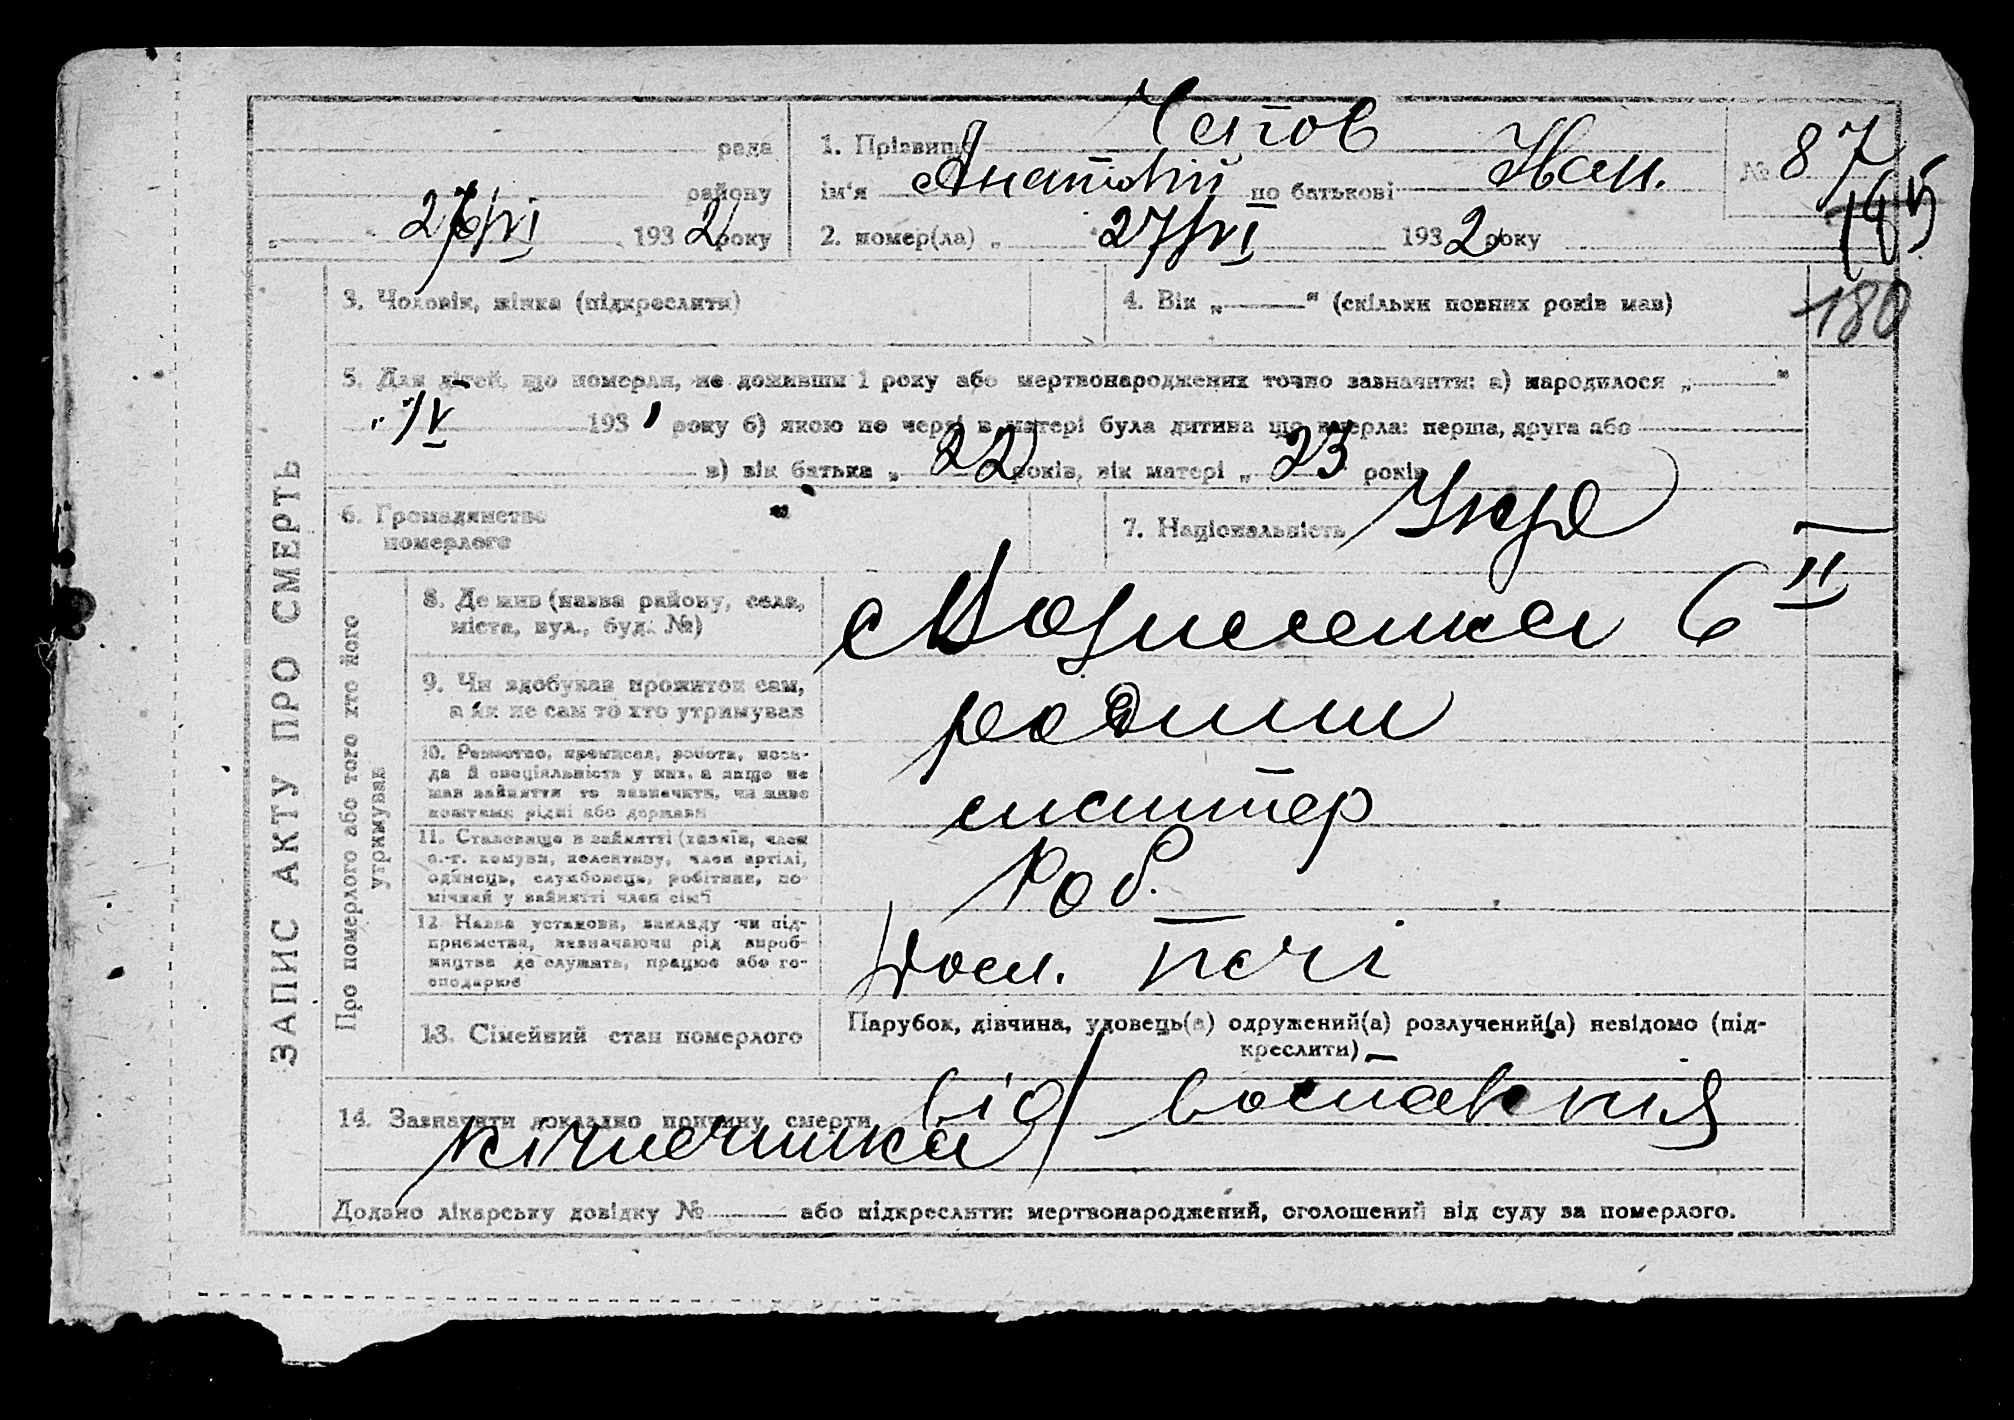 рада
району
27/VI 1932 року
1. Прізвище Чепов
ім'я Анатолій по батькові Иван.
2. помер(ла) „ 27/VI 1932 року
№ 87
165
180
ЗАПИС АКТУ ПРО СМЕРТЬ
3. Чоловік, жінка (підкреслити)
4. Вік „ “ (скільки повних років мав)
5. Для дітей, що померли, не доживши 1 року або мертвонароджених точно зазначити: а) народилося „ “
193 року б) якою по черзі в матері була дитина що вмерла: перша, друга або
в) вік батька „ 22 років, вік матері „ 23 років
6. Громадянство
померлого
7. Національність Укр
Про померлого або того хто його
утримував
8. Де жив (назва району, села,
міста, вул., буд. №)
с Вознесенка 6 II
9. Чи здобував прожиток сам,
а як не сам то хто утримував
родини
10. Ремество, промисел, робота, поса-
да й спеціяльність у них, а якщо не
мав зайняття то зазначити, чи живе
коштами рідні або держави
11. Становище в зайнятті (хазяїн, член
с.-г. комуни, колективу, член артілі,
одинець, службовець, робітник, по-
мічний у зайнятті член сім'ї
Роб.
12 Назва установи, закладу чи під-
приємства, зазначаючи рід вироб-
ництва де служить, працює або го-
сподарює
печі
13. Сімейний стан померлого
Парубок, дівчина, удовець(а) одружений(а) розлучений(а) невідомо (під-
креслити)
14. Зазначити докладно причину смерти від
Додано лікарську довідку № або підкреслити: мертвонароджений, оголошений від суду за померлого.